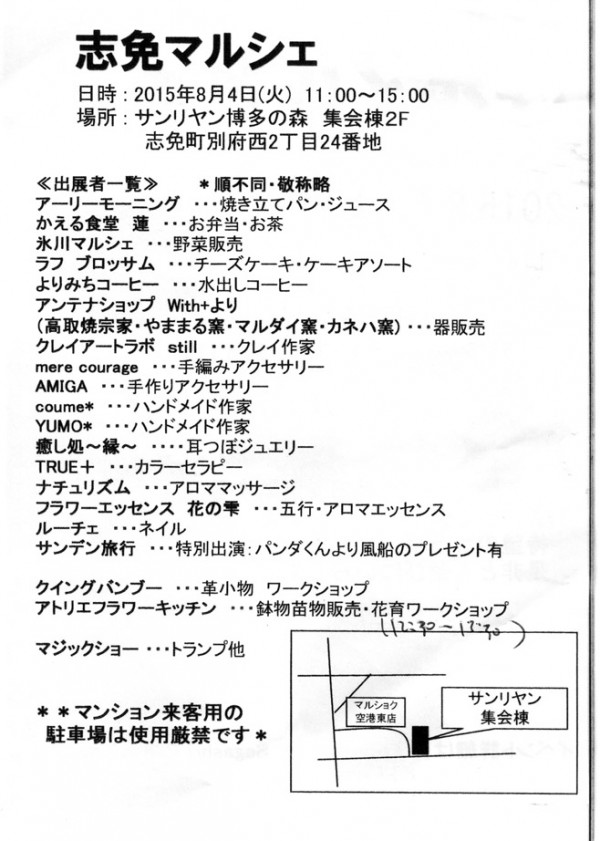 志免マルシェ
日時：2015年8月4日(火) 11:00～15:00
場所：サンリヤン博多の森 集会棟2F
志免町別府西2丁目24番地
≪出展者一覧≫ ＊順不同・敬称略
アーリーモーニング ･･･焼き立てパン・ジュース
かえる食堂 蓮 ･･･お弁当・お茶
氷川マルシェ ･･･野菜販売
ラフ ブロッサム ･･･チーズケーキ・ケーキアソート
よりみちコーヒー ･･･水出しコーヒー
アンテナショップ With+より
（高取焼宗家・やままる窯・マルダイ窯・カネハ窯）･･･器販売
クレイアートラボ still ･･･クレイ作家
mere courage ･･･手編みアクセサリー
AMIGA ･･･手作りアクセサリー
coume* ･･･ハンドメイド作家
YUMO* ･･･ハンドメイド作家
癒し処～縁～ ････耳つぼジュエリー
TRUE＋ ･･･カラーセラピー
ナチュリズム ･･･アロママッサージ
フラワーエッセンス 花の雫 ･･･五行・アロマエッセンス
ルーチェ ･･･ネイル
サンデン旅行 ･･･特別出演：パンダくんより風船のプレゼント有
クイングバンブー ･･･革小物 ワークショップ
アトリエフラワーキッチン ･･･鉢物苗物販売・花育ワークショップ
(12:30～13:30)
マジックショー ･･･トランプ他
＊＊マンション来客用の
駐車場は使用厳禁です＊
マルショク
空港東店
サンリヤン
集会棟